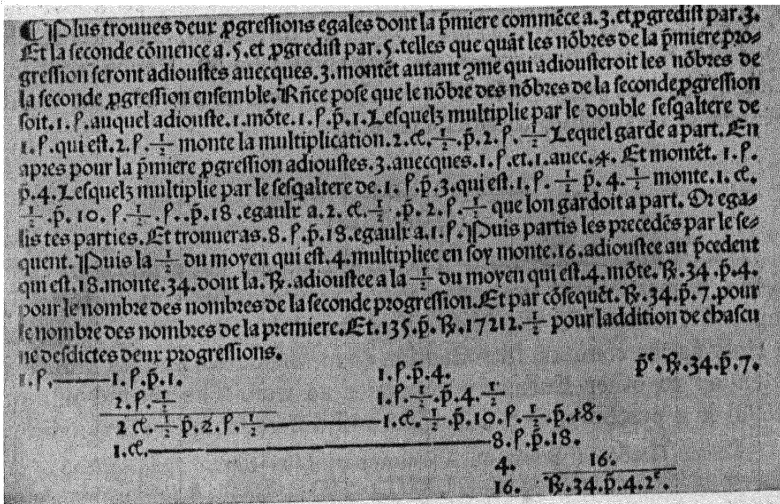 Plus trouues deux ꝓgressions egales dont la p̄miere commēce a .3. et ꝓgredist par .3.
Et la seconde cōmence a .5. et ꝓgredist par .5. telles que quāt les nōbres de la p̄miere pro-
gression seront adioustes auecques .3. montēt autant ꝯme qui adiousteroit les nōbres de
la seconde ꝓgression ensemble. Rn̄ce pose que le nōbre des nōbres de la seconde ꝓgression
soit .1.ꝭ. auquel adiouste .1. mōte .1.ꝭ.p̄.1. Lesquelz multiplie par le double sesqaltere de
.1.ꝭ. qui est .2.ꝭ. 1/2 monte la multiplication .2.ct. 1/2 .p̄.2.ꝭ. 1/2 Lequel garde a part. En
apres pour la p̄miere ꝓgression adioustes .3. auecques .1.ꝭ. et .1. auec .4. Et montēt .1.ꝭ.
p̄.4. Lesquelz multiplie par le sesqaltere de .1.ꝭ.p̄.3. qui est .1.ꝭ. 1/2 p̄.4. 1/2 monte .1.ct.
1/2 .p̄.10.ꝭ. 1/2 .ꝭ..p̄.18. egaulx a .2.ct. 1/2 .p̄.2.ꝭ. 1/2 que lon gardoit a part. Or ega-
lis tes parties. Et trouueras .8.ꝭ.p̄.18. egaulx a .1.ꝭ. Puis partis les precedēs par le se-
quent. Puis la 1/2 du moyen qui est .4. multipliee en soy monte .16. adioustee au p̄cedent
qui est .18. monte .34. dont la .℞. adioustee a la 1/2 du moyen qui est .4. mōte .℞.34.p̄.4.
pour le nombre des nombres de la seconde progression. Et par cōsequēt .℞.34.p̄.7. pour
le nombre des nombres de la premiere. Et .135.p̄.℞.17212. 1/2 pour laddition de chascu
ne desdictes deux progressions.
1.ꝭ. 1.ꝭ.p̄.1. 1.ꝭ.p̄.4. p̄ͤ.℞.34.p̄.7.
2.ꝭ. 1/2 1.ꝭ. 1/2 .p̄.4. 1/2
2 ct. 1/2 p̄.2.ꝭ. 1/2 1.ct. 1/2 .p̄.10.ꝭ. 1/2 .p̄.18.
1.ct. 8.ꝭ.p̄.18.
4. 16.
16. ℞.34.p̄.4.2ͤ.